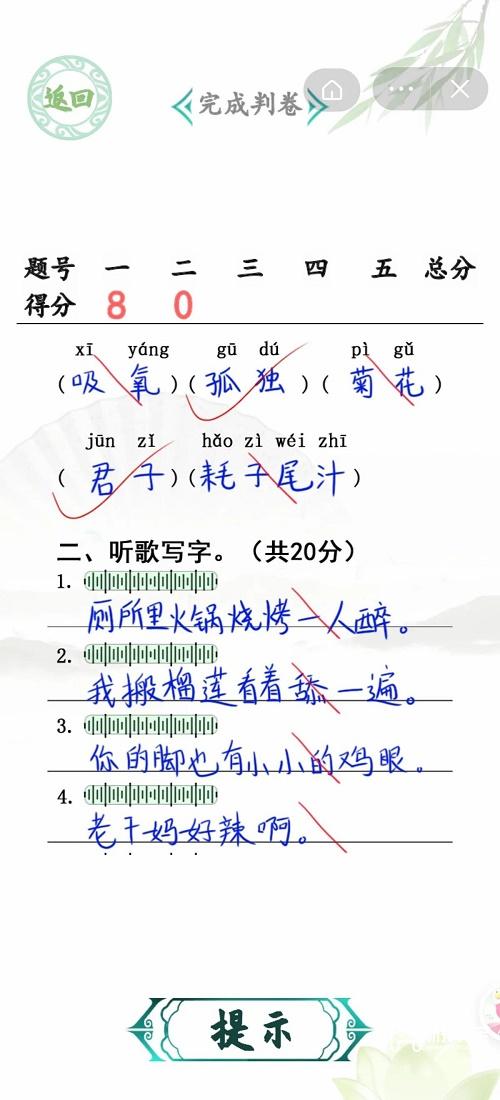 返回
完成判卷
题号 一 二 三 四 五 总分
得分 8 0
xī yáng gū dú pì gǔ
(吸 氧)(孤 独)(菊 花)
jūn zǐ hǎo zì wéi zhī
(君 子)(耗子尾汁)
二、听歌写字。(共20分)
1.
厕所里火锅烧烤一人醉。
2.
我搬榴莲看着舔一遍。
3.
你的脚也有小小的鸡眼。
4.
老干妈好辣啊。
提示